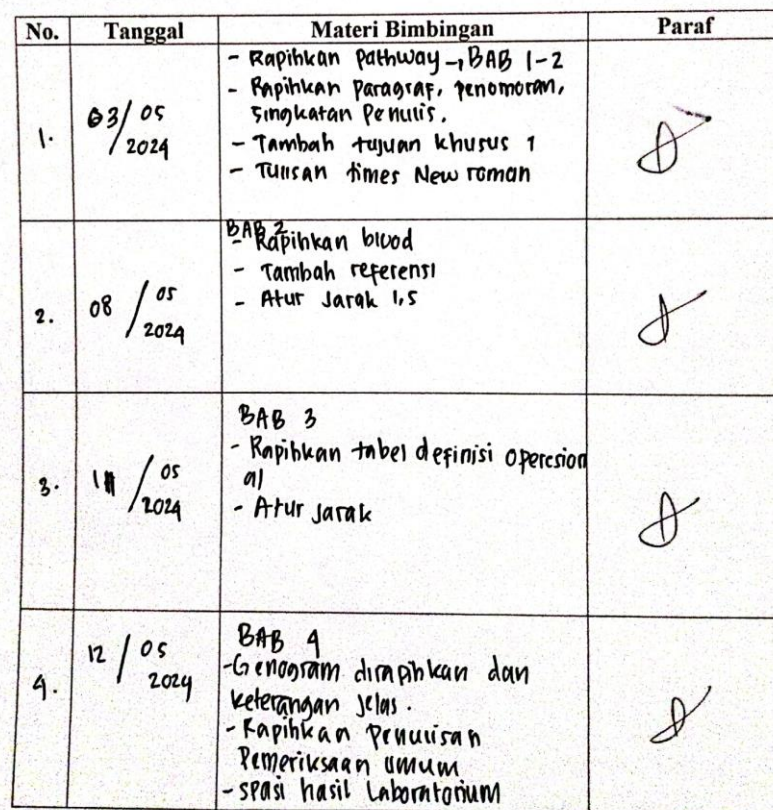 No. Tanggal Materi Bimbingan Paraf
1. 03/05 2024
- Rapihkan Pathway → BAB 1-2
- Rapihkan Paragraf, Penomoran,
Singkatan Penulis.
- Tambah tujuan khusus 1
- Tulisan times New roman
2. 08/05 2024
BAB 2
- Rapihkan blood
- Tambah referensi
- Atur Jarak 1,5
3. 11/05 2024
BAB 3
- Rapihkan tabel definisi opersion
al
- Atur Jarak
4. 12/05 2024
BAB 4
- Genogram dirapihkan dan
keterangan jelas.
- Rapihkan Penulisan
Pemeriksaan umum
- spasi hasil Laboratorium